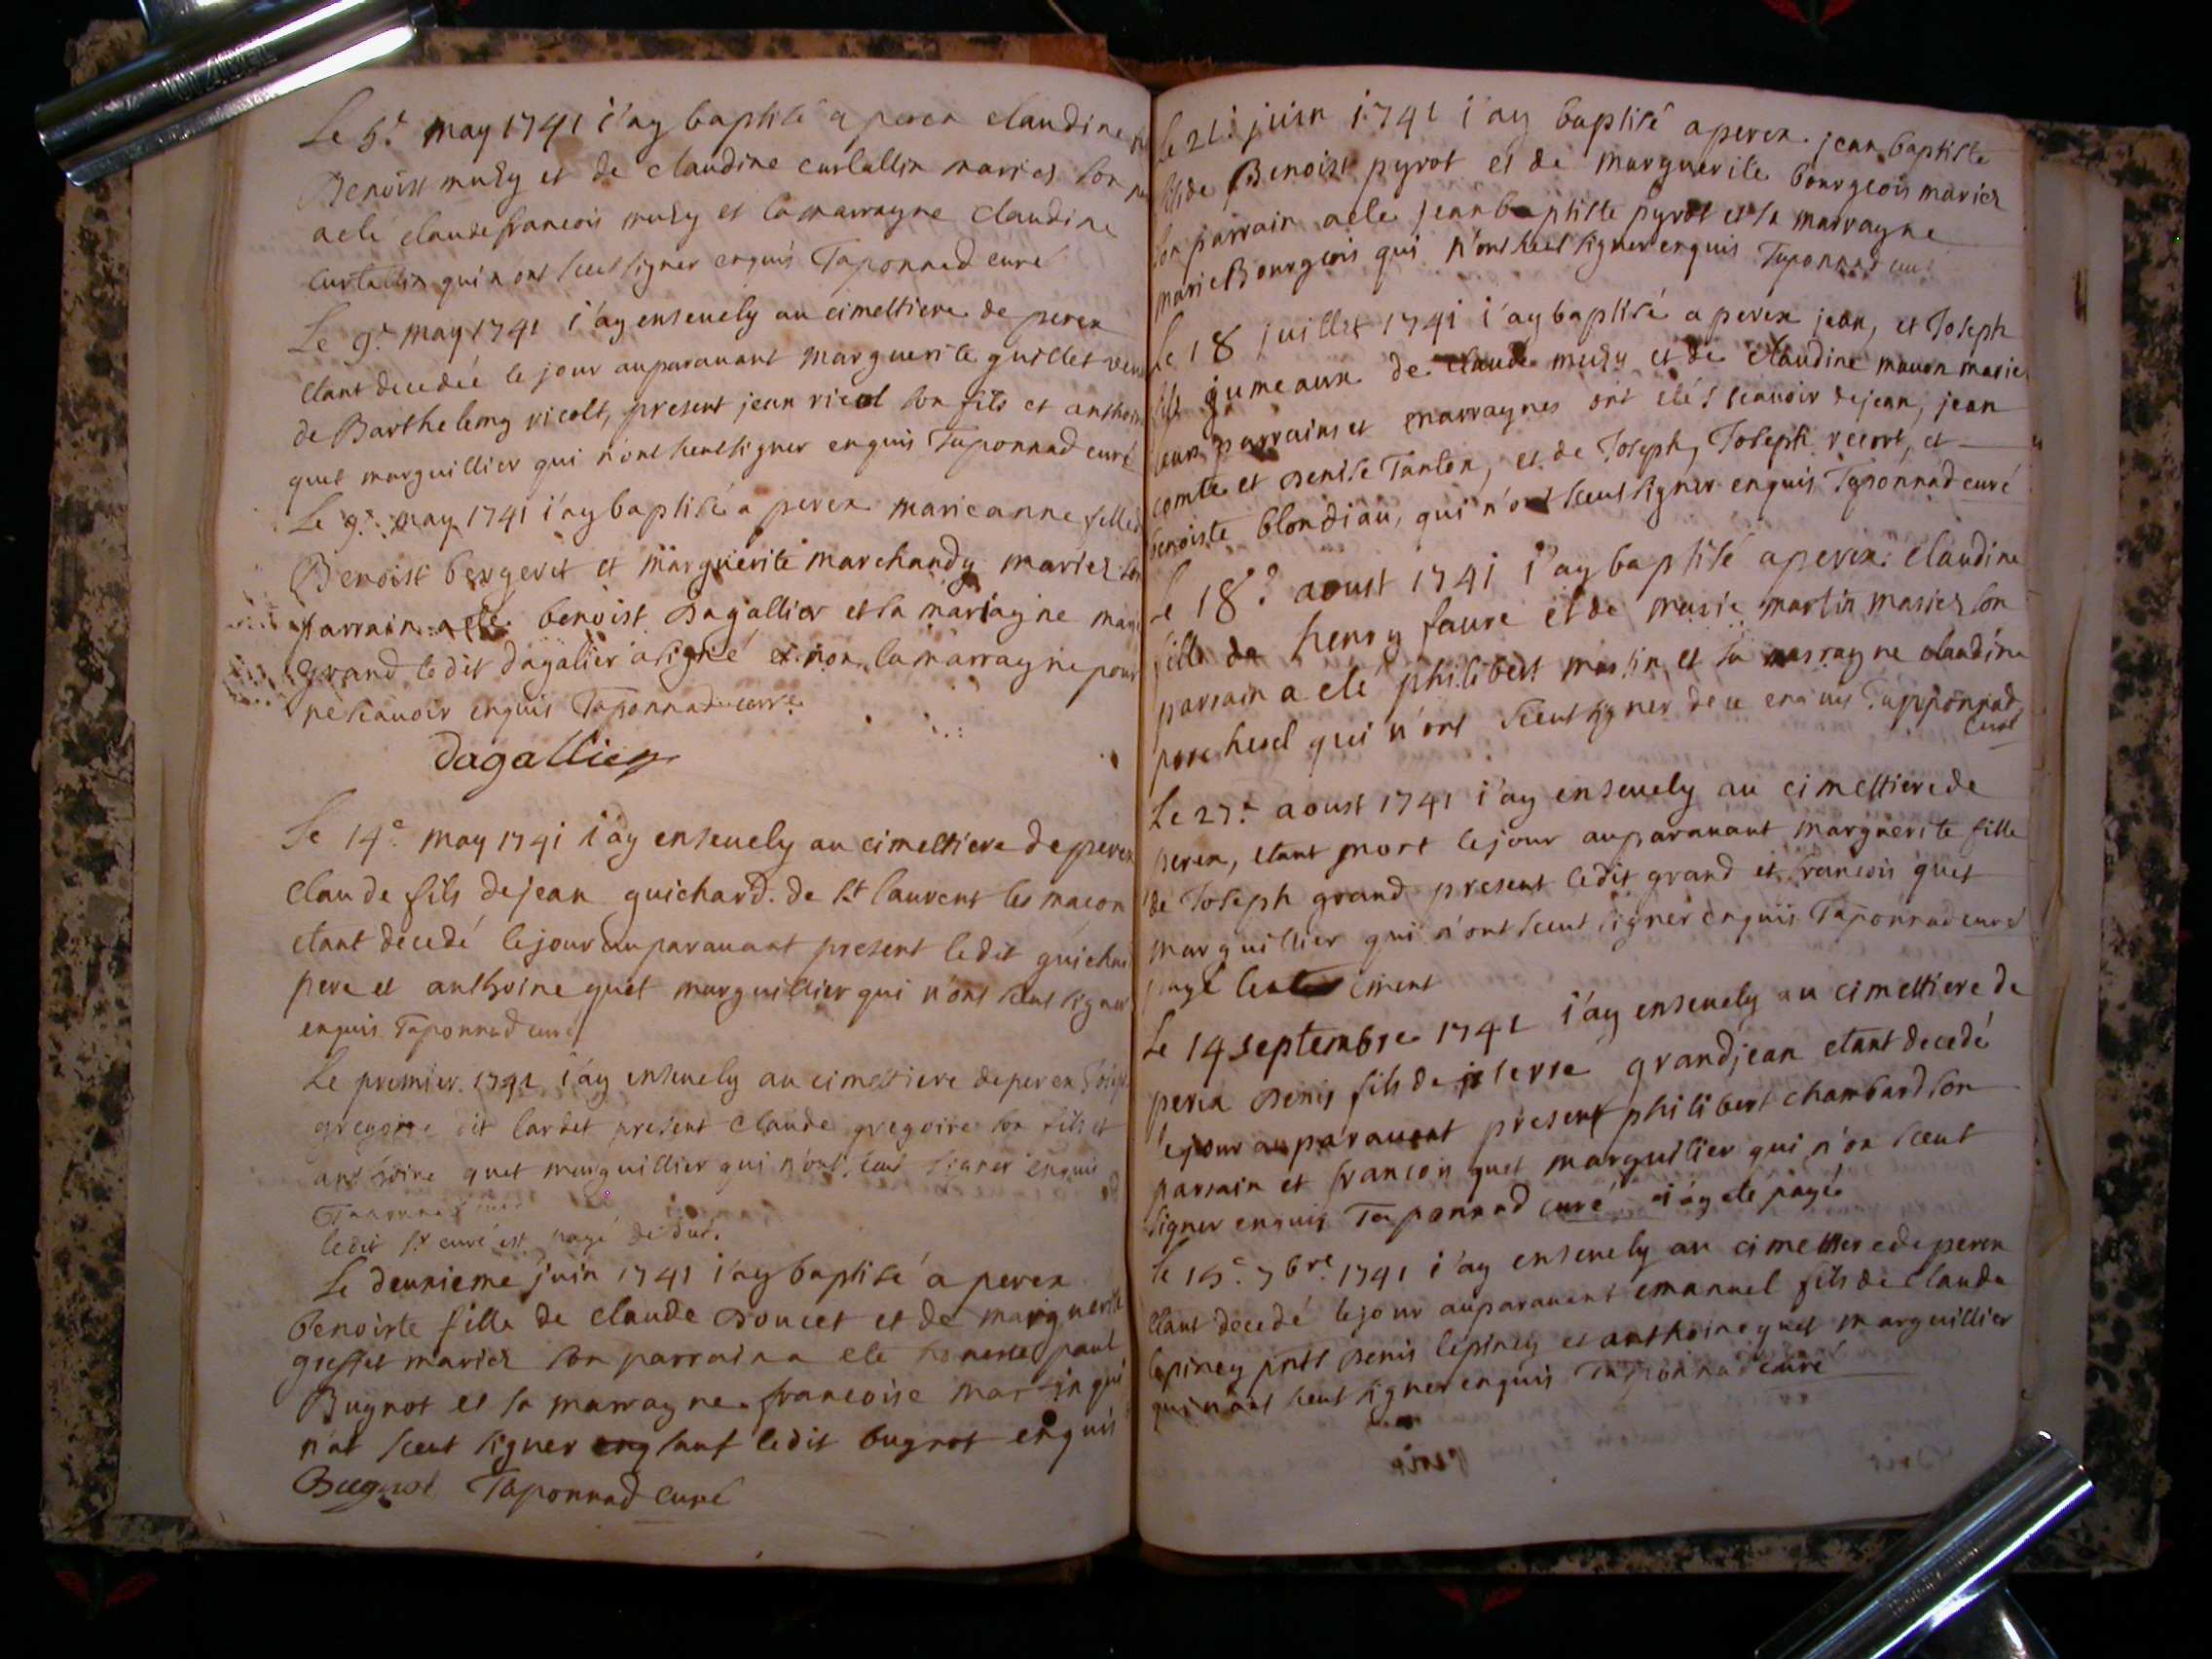 Le 5e may 1741 i'ay baptisé a peren claudine
Benoist muzy et de claudine curtallin mariés son
a eté claude francois muzy et la marrayne claudine
curtallin qui n'ont sceut signer enquis Taponnad curé
Le 9e may 1741 i'ay enseuely au cimeltiere de peren
etant decedée le jour auparauant marguerite guillet
de Barthelemy ricolt, present jean ricol son fils et anthoin
quet marguillier qui n'ont sceut signer enquis Taponnad curé
Le 9e may 1741 i'ay baptisé a peren marie anne fille
Benoist bergeret et marguerite marchandy mariez son
parrain a eté benoist Dagallier et sa marrayne
grand le dit dagalier a signé et non la marrayne pour
ne scauoir enquis Taponnad curé
dagallier
Le 14e may 1741 i'ay enseuely au cimeltiere de peren
claude fils de jean guichard de st laurent les macon
etant decedé le jour auparauant present ledit guichar
pere et anthoine quet marguillier qui n'ont sceut signer
enquis Taponnad curé
Le premier 1741 i'ay enseuely au cimeltiere de peren Josep
gregoire dit lardet present claude gregoire son fils et
anthoine quet marguillier qui n'ont sceut signer enquis
Taponnad curé
ledit sr curé est payé de dus.
Le deunieme juin 1741 i'ay baptisé a peren
benoiste fille de claude Doucet et de marguerite
greffet mariez son parrain a eté honeste paul
Bugnot et sa marrayne francoise martin qui
n'at sceut signer sauf ledit bugnot enquis
Bugnot Taponnad curé
le 21e juin 1741 i'ay baptisé a peren jean baptiste
fils de Benoist pyrot et de marguerite bourgeois mariez
son parrain a eté jean baptiste pyrot et sa marrayne
marie Bourgeois qui n'ont sceut signer enquis Taponnad curé
Le 18 juillet 1741 i'ay baptisé a peren jean, et Joseph
fils jumeaux de claude muzy et de claudine mauon mariez
leurs parrains et marraynes ont etés scauoir de jean, jean
comte et Denise Tanton, et de Joseph, Joseph recort, et
benoiste blondiau, qui n'ont sceut signer enquis Taponnad curé
Le 18e aoust 1741 i'ay baptisé a peren claudine
fille de henry faure et de marie martin mariez son
parrain a eté philibert martin et sa marrayne claudine
qui n'ont sceut signer de ce enquis Tapponnad
curé
Le 27e aoust 1741 i'ay enseuely au cimeltiere de
peren, etant mort le jour auparauant marguerite fille
de Joseph grand present ledit grand et francois quet
marguillier qui n'ont sceut signer enquis Taponnad curé
payé
Le 14 septembre 1741 i'ay enseuely au cimeltiere de
peren Denis fils de pierre grandjean etant decedé
le jour auparauant present philibert chambard son
parrain et francois quet marguilier qui n'on sceut
signer enquis Taponnad curé i'ay eté payé
Le 15e 7bre 1741 i'ay enseuely au cimeltiere de peren
etant decedé le jour auparauant emanuel fils de claude
lepiney pnts Denis lepiney et anthoine quet marguillier
qui n'ont sceut signer enquis Taponnad curé